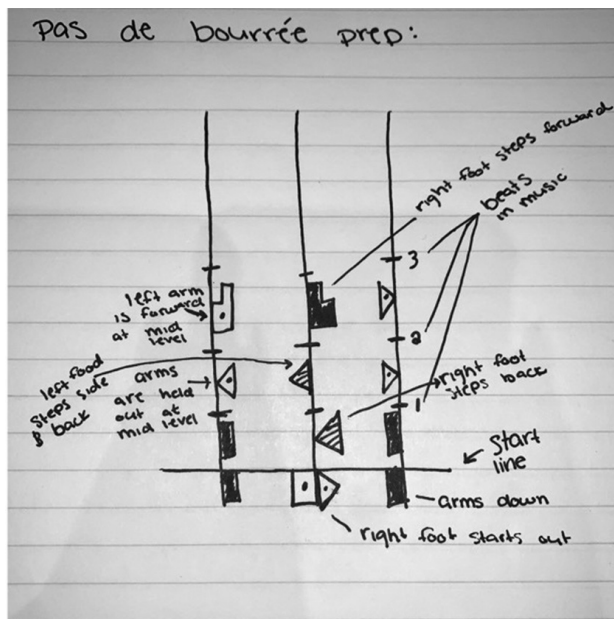 pas de bourrée prep:
right foot steps forward
beats
in music
3
left arm
is forward
at mid
level
2
left food
steps side
& back
arms
are held
out at
mid level
right foot
steps back
1
Start
line
arms down
right foot starts out